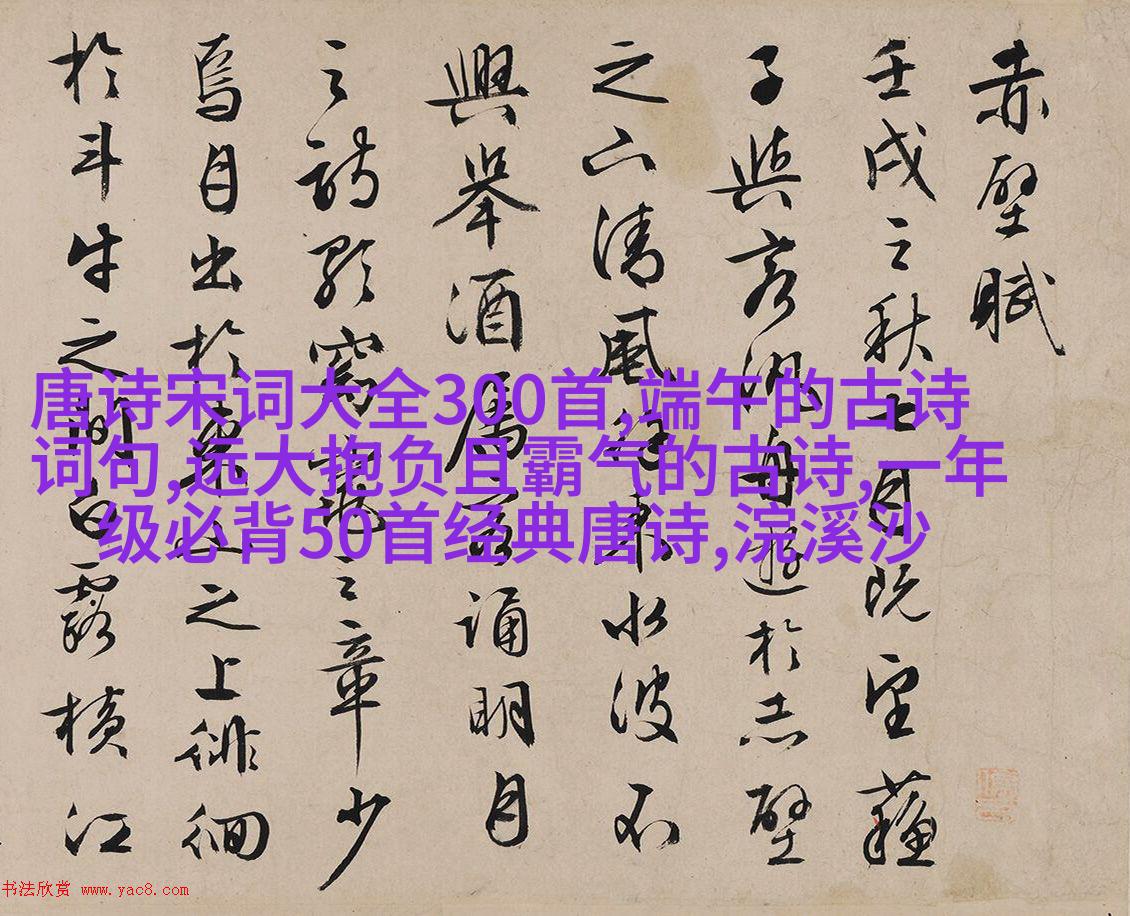 赤壁賦
壬戌之秋七月既望蘇
子與客泛舟遊於赤壁
之下清風徐来水波不
興舉酒屬客誦明月
之詩歌窈窕之章少
焉月出於東山之上徘徊
於斗牛之間白露橫江
唐诗宋词大全300首,端午的古诗
词句,远大抱负且霸气的古诗,一年
级必背50首经典唐诗,浣溪沙
书法欣赏 www.yac8.com